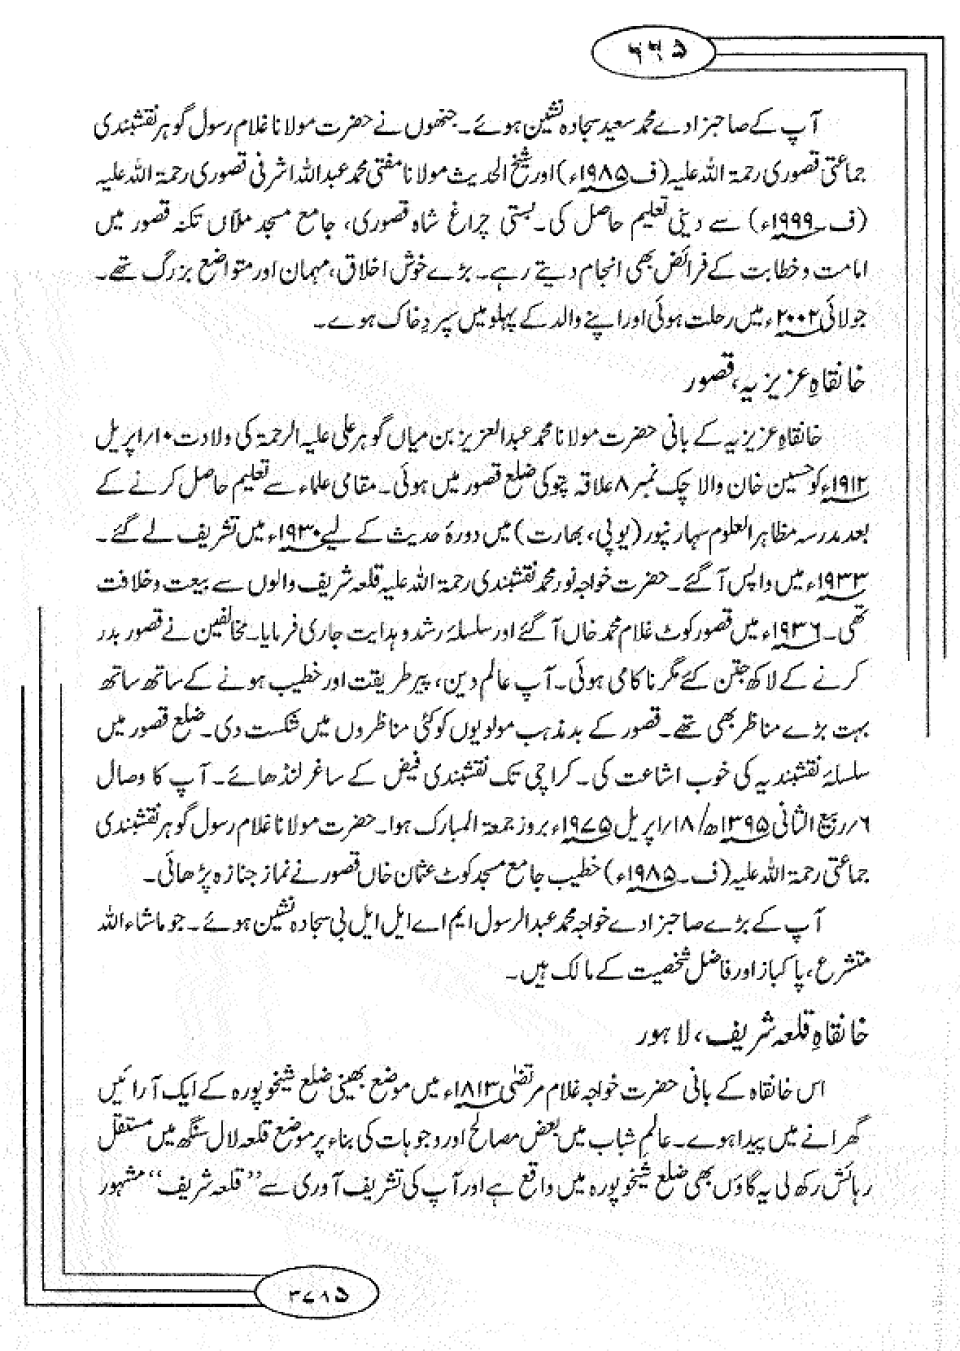 ۶۶۵
آپ کے صاحبزادے محمد سعید سجادہ نشین ہوئے۔ جنھوں نے حضرت مولانا غلام رسول گوہر نقشبندی
جماعتی قصوری رحمۃ اللہ علیہ (ف ۱۹۸۵ء) اور شیخ الحدیث مولانا مفتی محمد عبد اللہ اشرفی قصوری رحمۃ اللہ علیہ
(ف۔۱۹۹۹ء) سے دینی تعلیم حاصل کی۔ بستی چراغ شاہ قصوری، جامع مسجد ملاں تکنہ قصور میں
امامت و خطابت کے فرائض بھی انجام دیتے رہے۔ بڑے خوش اخلاق، مہمان اور متواضع بزرگ تھے۔
جولائی ۲۰۰۲ء میں رحلت ہوئی اور اپنے والد کے پہلو میں سپردِ خاک ہوے۔
خانقاہِ عزیزیہ، قصور
خانقاہِ عزیزیہ کے بانی حضرت مولانا محمد عبد العزیز بن میاں گوہر علی علیہ الرحمۃ کی ولادت ۱۰/اپریل
۱۹۱۲ء کو حسین خان والا چک نمبر ۸ علاقہ پتوکی ضلع قصور میں ہوئی۔ مقامی علماء سے تعلیم حاصل کرنے کے
بعد مدرسہ مظاہر العلوم سہارنپور (یوپی، بھارت) میں دورۂ حدیث کے لیے ۱۹۳۰ء میں تشریف لے گئے۔
۱۹۳۳ء میں واپس آ گئے۔ حضرت خواجہ نور محمد نقشبندی رحمۃ اللہ علیہ قلعہ شریف والوں سے بیعت و خلافت
تھی۔ ۱۹۳۶ء میں قصور کوٹ غلام محمد خاں آ گئے اور سلسلۂ رشد و ہدایت جاری فرمایا۔ مخالفین نے قصور بدر
کرنے کے لاکھ جتن کئے مگر ناکامی ہوئی۔ آپ عالم دین، پیر طریقت اور خطیب ہونے کے ساتھ ساتھ
بہت بڑے مناظر بھی تھے۔ قصور کے بد مذہب مولویوں کو کئی مناظروں میں شکست دی۔ ضلع قصور میں
سلسلۂ نقشبندیہ کی خوب اشاعت کی۔ کراچی تک نقشبندی فیض کے ساغر لنڈھائے۔ آپ کا وصال
۶/ربیع الثانی ۱۳۹۵ھ/۱۸/اپریل ۱۹۷۵ء بروز جمعۃ المبارک ہوا۔ حضرت مولانا غلام رسول گوہر نقشبندی
جماعتی رحمۃ اللہ علیہ (ف۔ ۱۹۸۵ء) خطیب جامع مسجد کوٹ عثمان خاں قصور نے نماز جنازہ پڑھائی۔
آپ کے بڑے صاحبزادے خواجہ محمد عبد الرسول ایم اے ایل ایل بی سجادہ نشین ہوئے۔ جو ماشاء اللہ
متشرع، پاکباز اور فاضل شخصیت کے مالک ہیں۔
خانقاہِ قلعہ شریف، لاہور
اس خانقاہ کے بانی حضرت خواجہ غلام مرتضیٰ ۱۸۱۳ء میں موضع بھینی ضلع شیخوپورہ کے ایک آرائیں
گھرانے میں پیدا ہوے۔ عالم شباب میں بعض مصالح اور وجوہات کی بناء پر موضع قلعہ لال سنگھ میں مستقل
رہائش رکھ لی یہ گاؤں بھی ضلع شیخوپورہ میں واقع ہے اور آپ کی تشریف آوری سے ”قلعہ شریف“ مشہور
۳۷۸۵